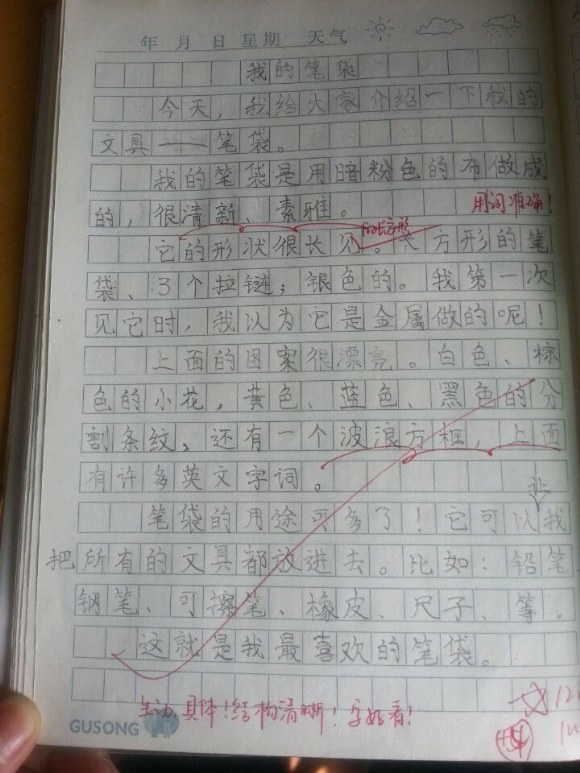 年 月 日 星期 天气
我的笔袋
今天，我给大家介绍一下我的
文具——笔袋。
我的笔袋是用暗粉色的布做成
的，很清新、素雅。
用词准确！
它的形状很长见。长方形的笔
袋、3个拉链；银色的。我第一次
见它时，我以为它是金属做的呢！
上面的图案很漂亮。白色、棕
色的小花，黄色、蓝色、黑色的分
割条纹，还有一个波浪方框，上面
有许多英文字词。
笔袋的用途可多了！它可以我
把所有的文具都放进去。比如：铅笔
钢笔、可擦笔、橡皮、尺子、等。
这就是我最喜欢的笔袋。
生动、具体！结构清晰！字好看！
GUSONG